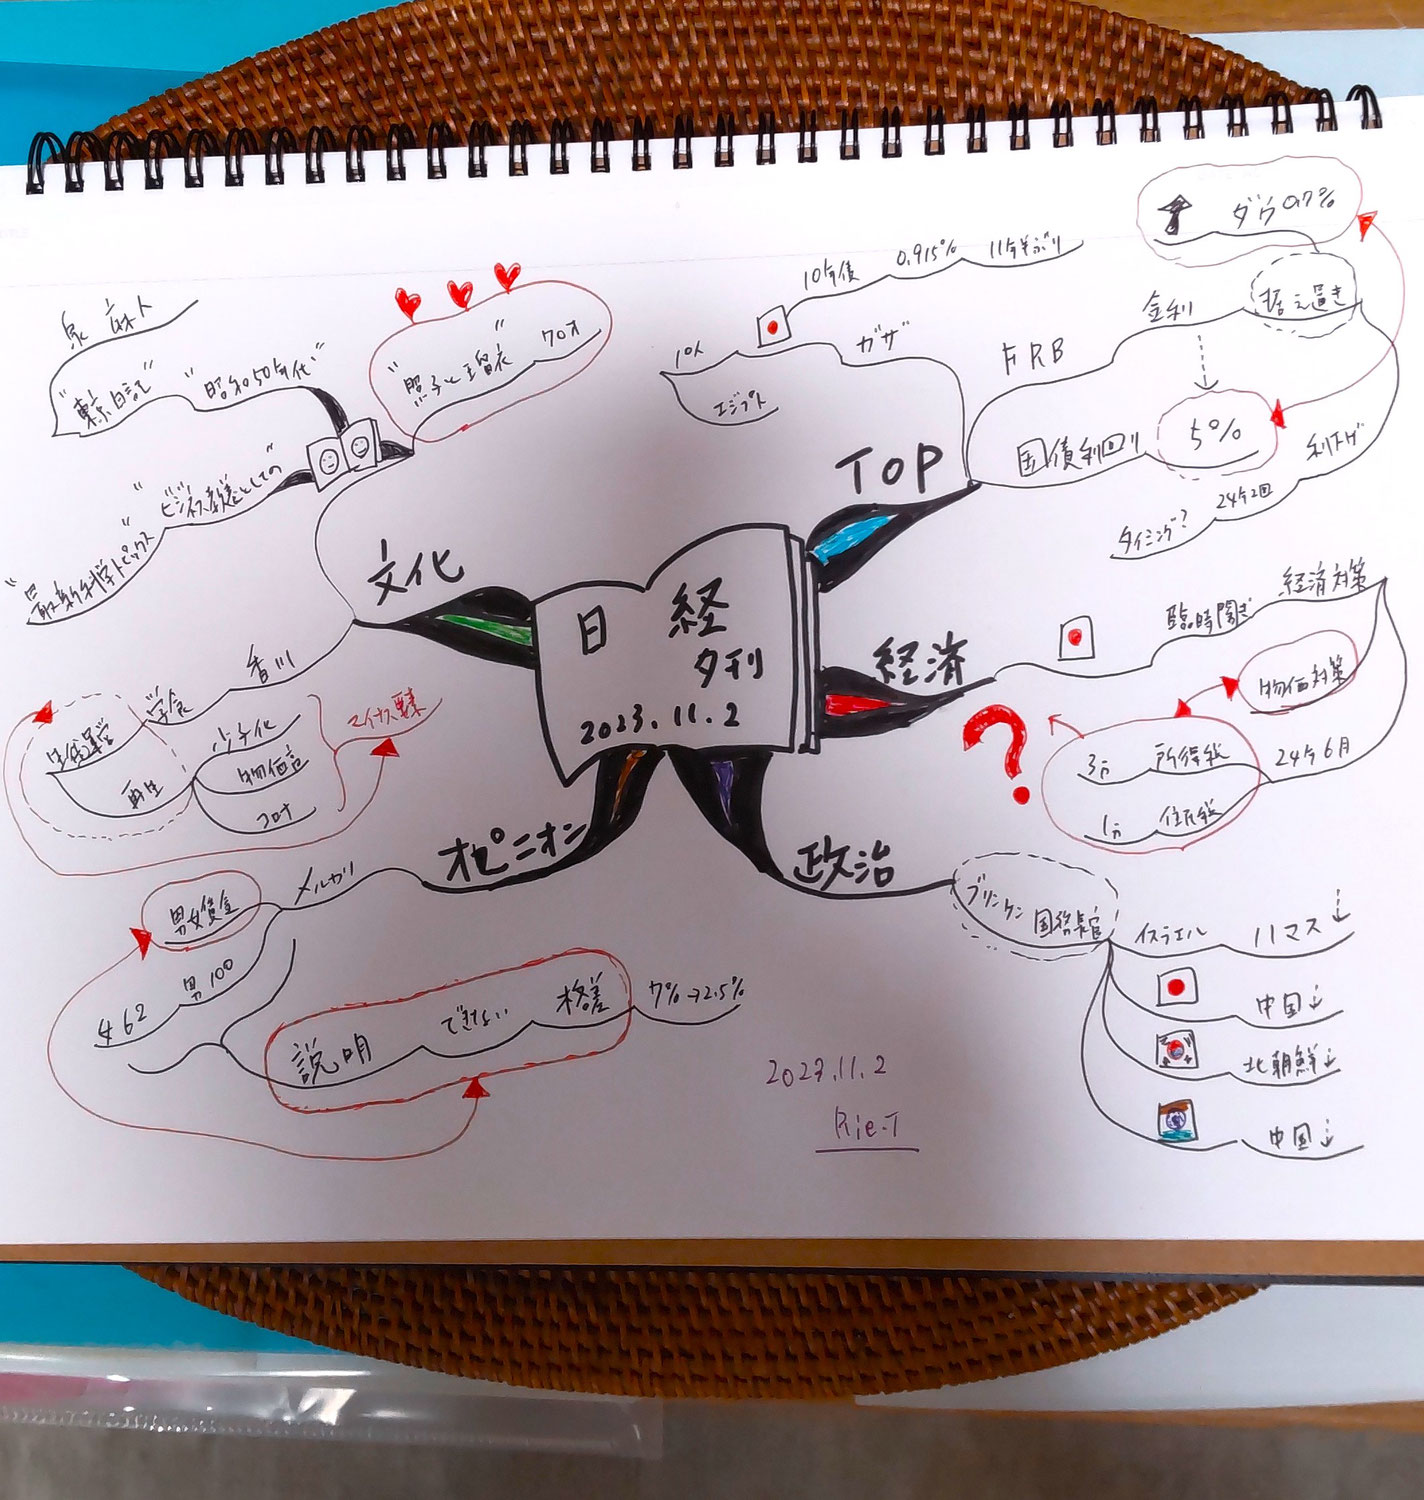 日 経
夕刊
2023.11.2
TOP
FRB
金利
据え置き
ダウ 0.7%
国債利回り
5%
利下げ
24年2回
タイミング?
ガザ
10人
エジプト
10年債
0.915%
11年半ぶり
経済
臨時閣ぎ
経済対策
物価対策
24年6月
3万 所得税
1万 住民税
?
政治
ブリンケン
国務長官
イスラエル
ハマス↓
中国↓
北朝鮮↓
中国↓
オピニオン
メルカリ
男女賃金
男100
女62
説明
できない
格差
7%→2.5%
文化
"照子と瑠衣"
クロオ
"昭和50年代"
"東京日記"
泉 麻人
"ビジネス教養としての"
"最新科学トピックス"
香川
学食
生徒運営
再生
少子化
物価高
コロナ
マイナス要素
2023.11.2
Rie.T